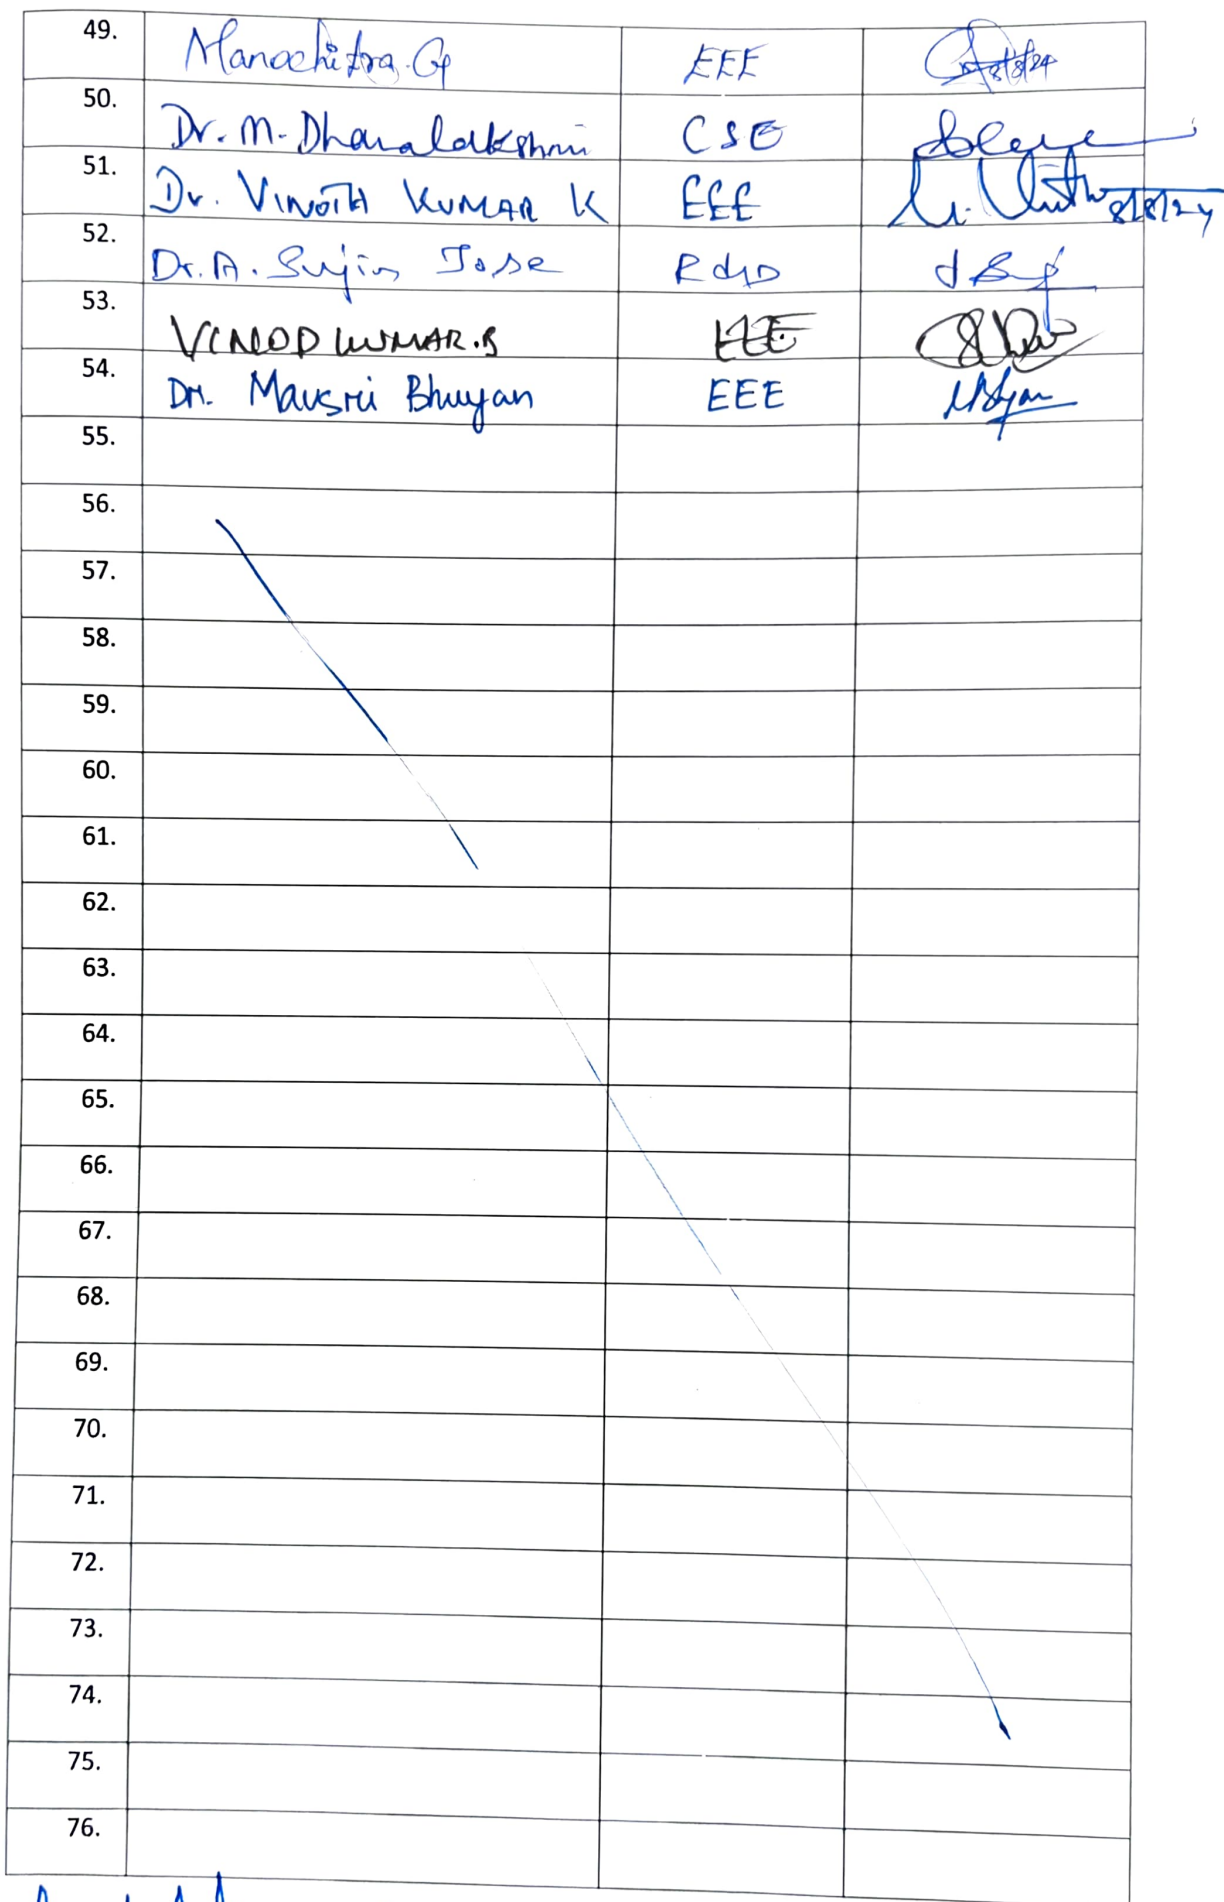 49. Manochitra. G EEE 8/8/24
50. Dr. M. Dhanalakshmi CSE
51. Dr. VINOTH KUMAR K EEE 8/8/24
52. Dr. A. Sujin Jose R&D
53. VINOD KUMAR.B EEE
54. Dr. Mausri Bhuyan EEE
55.
56.
57.
58.
59.
60.
61.
62.
63.
64.
65.
66.
67.
68.
69.
70.
71.
72.
73.
74.
75.
76.